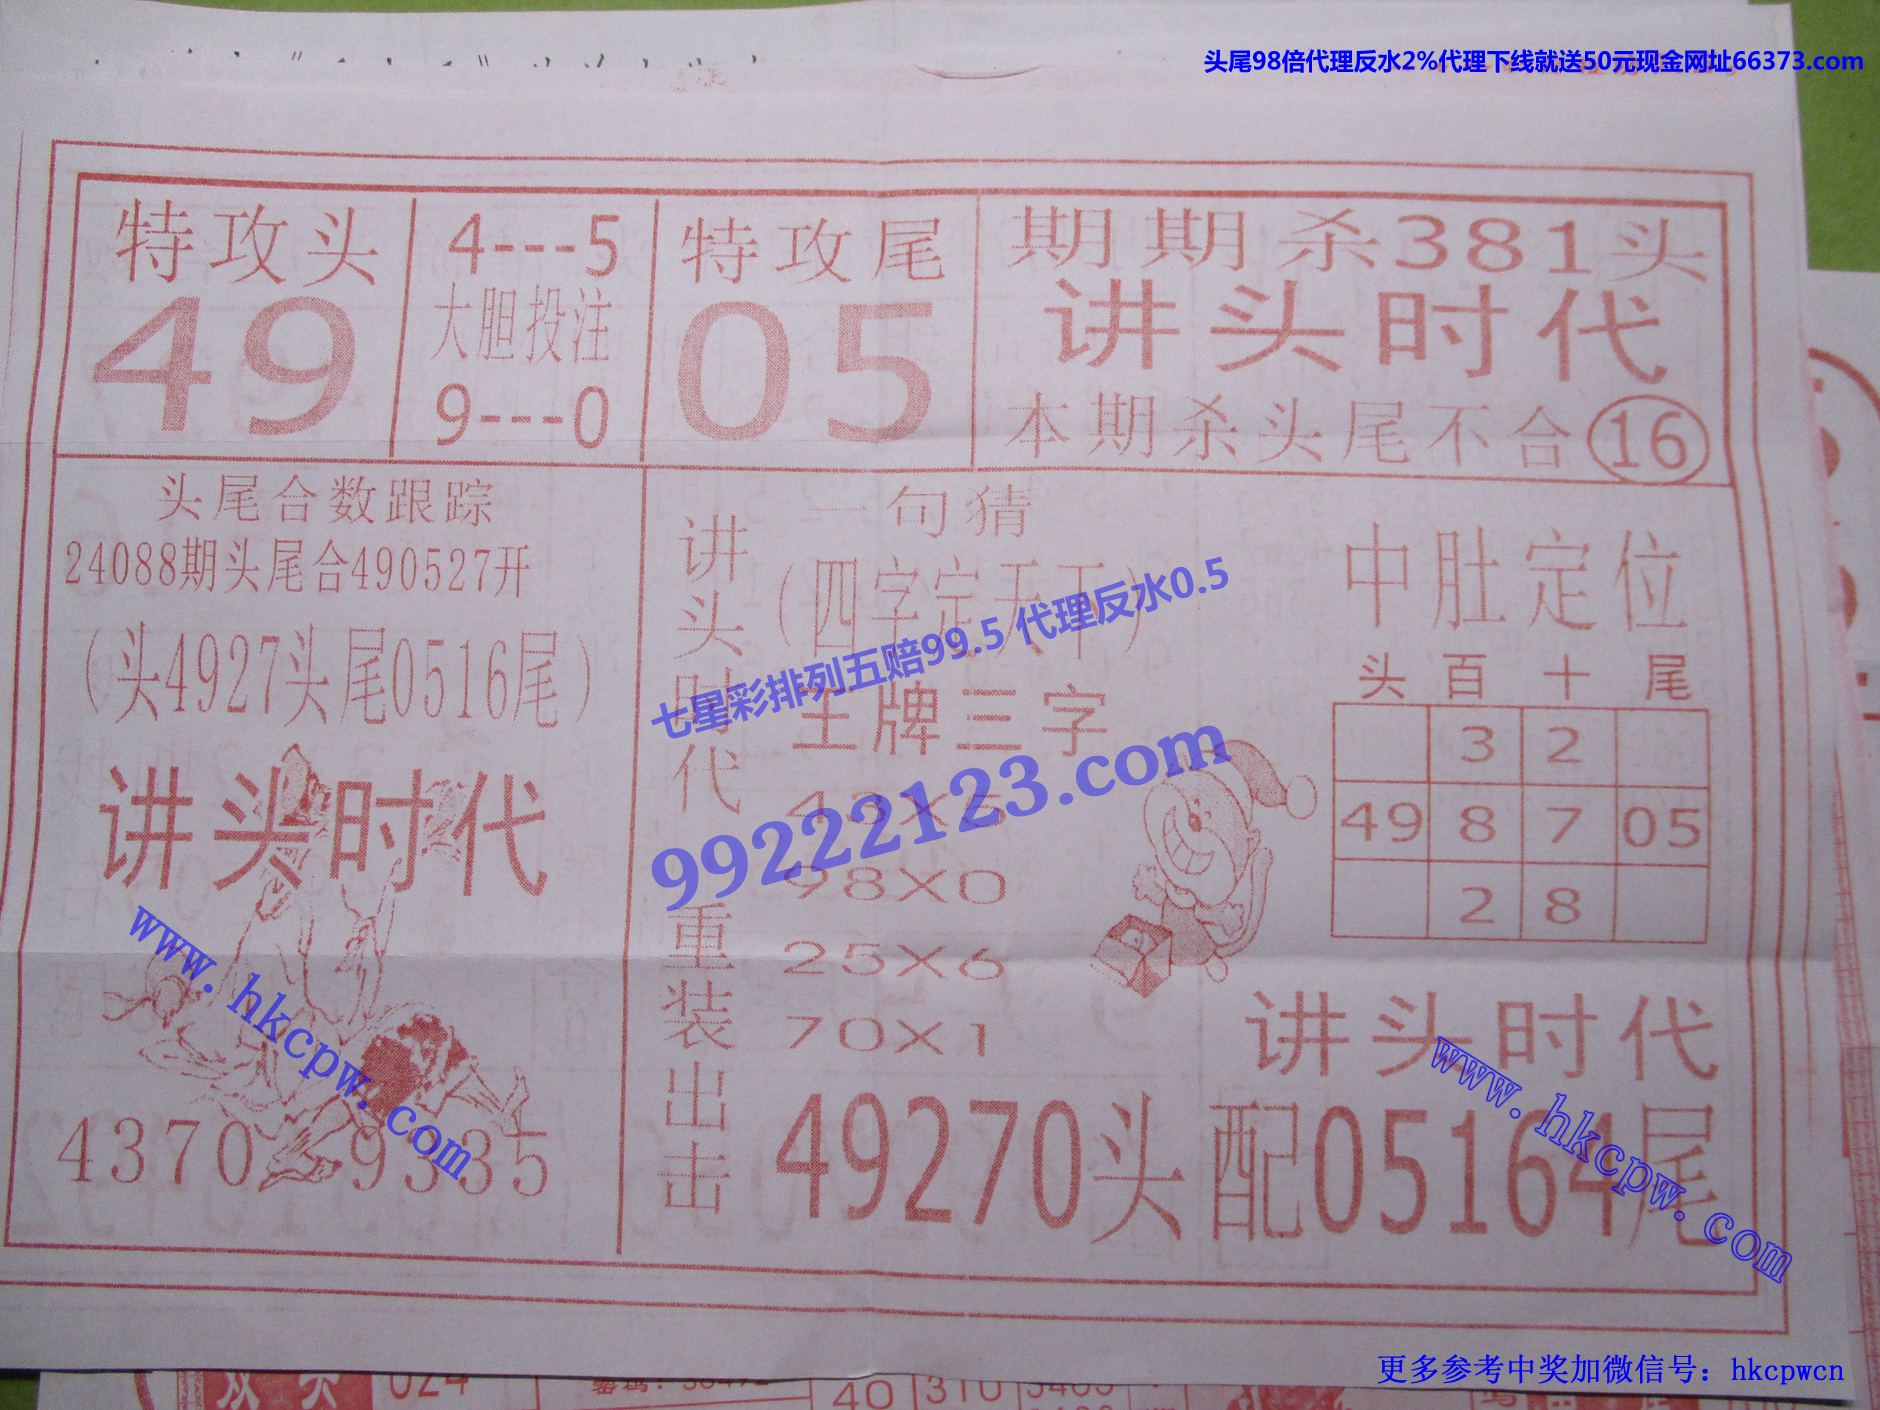 头尾98倍代理反水2%代理下线就送50元现金网址66373.com
特攻头
49
4---5
大胆投注
9---0
特攻尾
05
期期杀381头
讲头时代
本期杀头尾不合16
头尾合数跟踪
24088期头尾合490527开
（头4927头尾0516尾）
讲头时代
4370 9335
讲头时代
重装出击
一句猜
（四字定天下）
王牌三字
43X5
98X0
25X6
70X1
49270头配05164尾
中肚定位
头 百 十 尾
3 2
49 8 7 05
2 8
讲头时代
七星彩排列五赔99.5 代理反水0.5
99222123.com
www.hkcpw.com
www.hkcpw.com
024
40 310
更多参考中奖加微信号：hkcpwcn